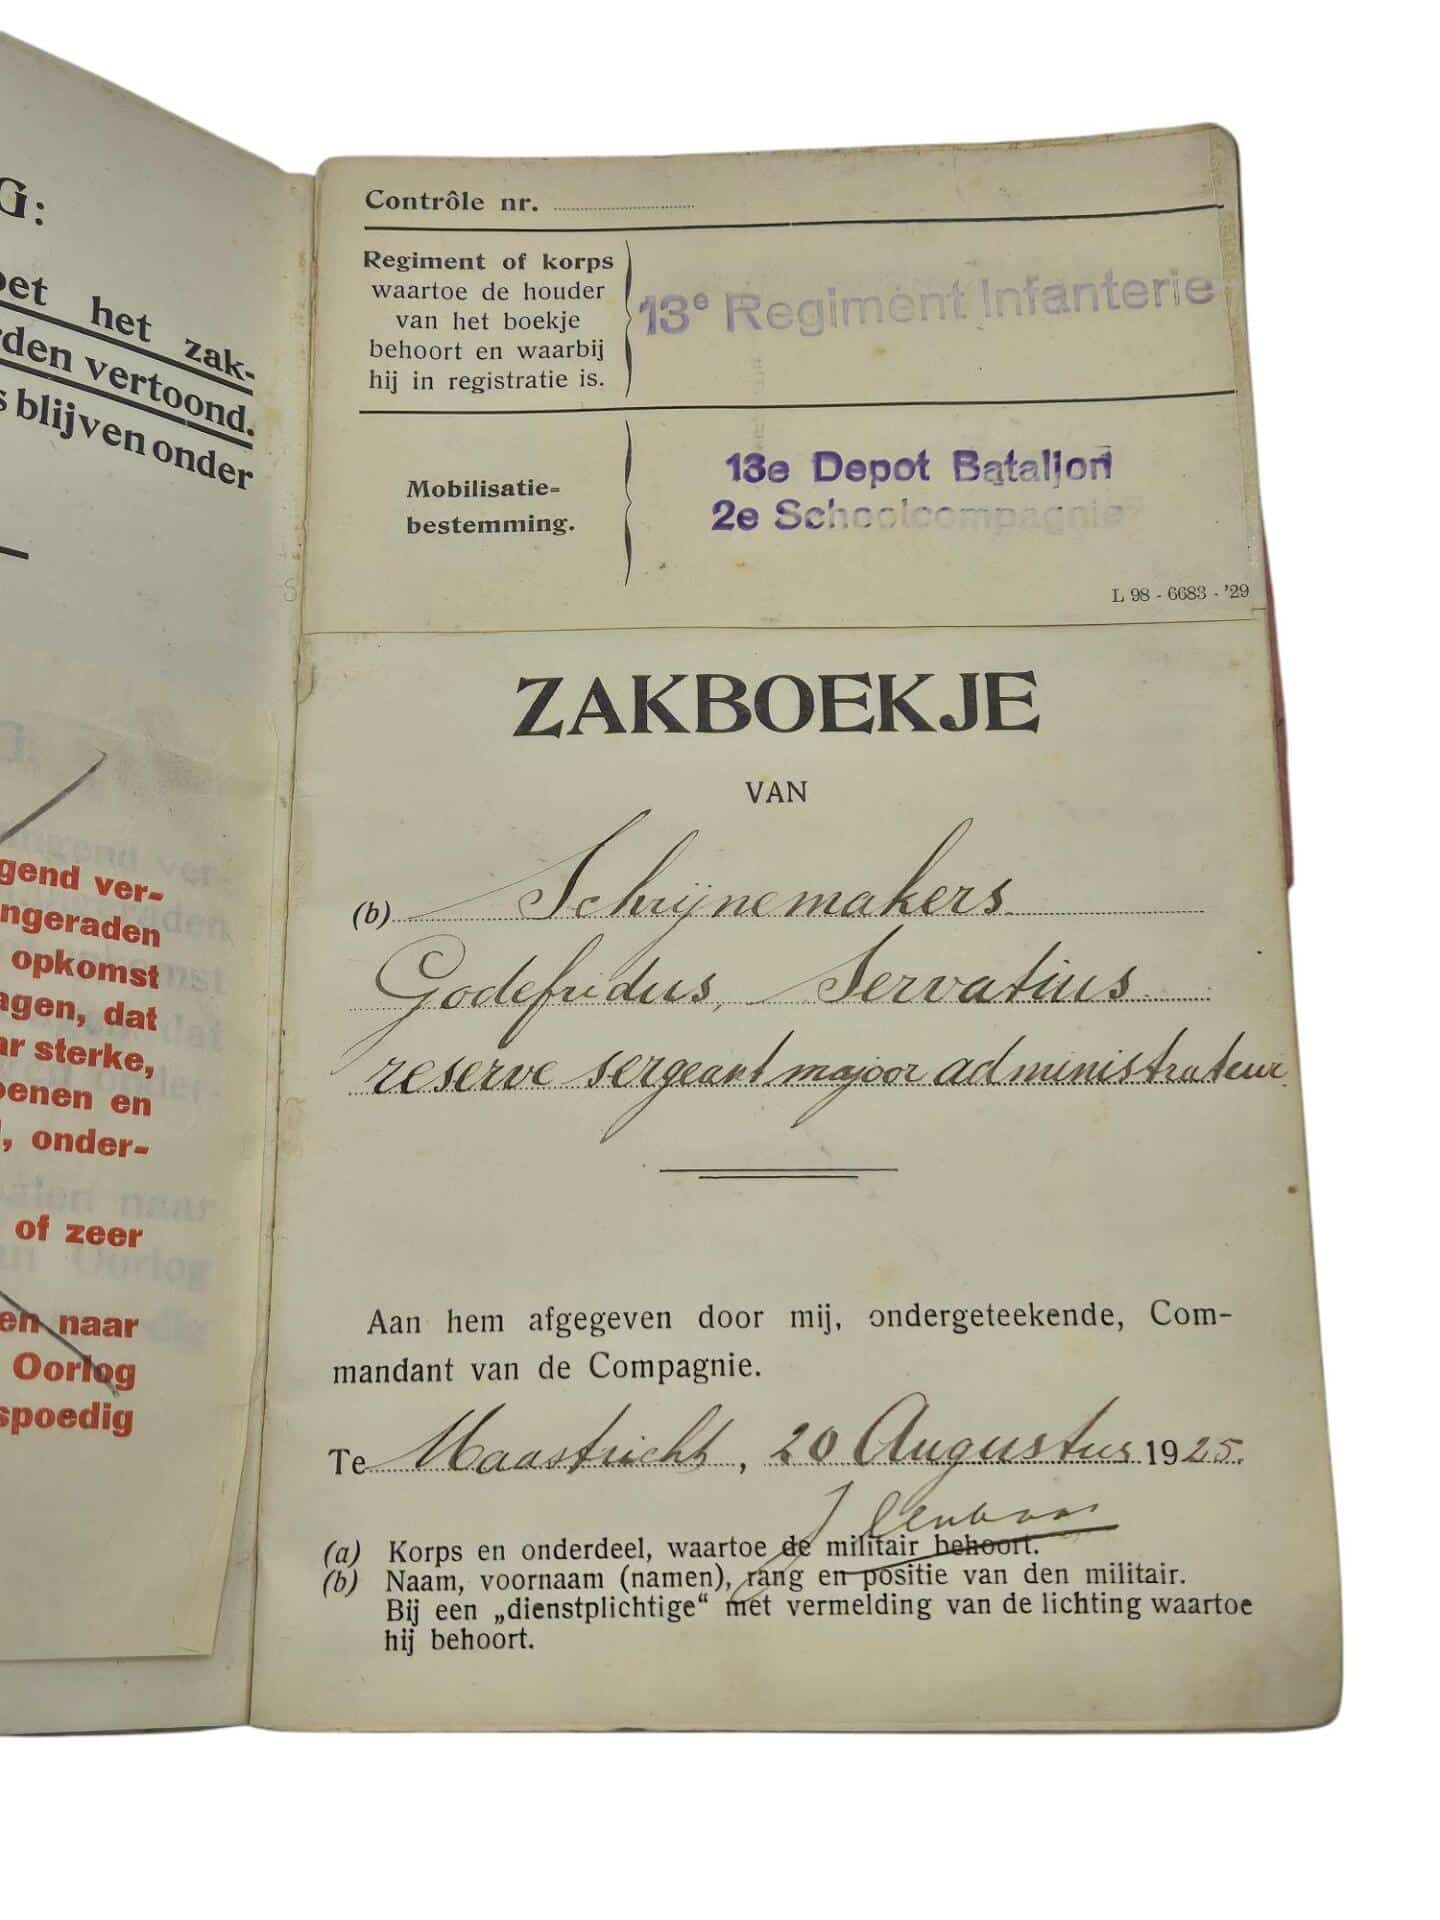 G:
het zak-
den vertoond.
blijven onder
gend ver-
ngeraden
opkomst
agen, dat
ar sterke,
oenen en
, onder-
of zeer
en naar
Oorlog
spoedig
Contrôle nr.
Regiment of korps
waartoe de houder
van het boekje
behoort en waarbij
hij in registratie is.
13e Regiment Infanterie
Mobilisatie-
bestemming.
13e Depot Bataljon
2e Schoolcompagnie
L 98 - 6683 - '29
ZAKBOEKJE
VAN
(b) Schrijnemakers
Godefridus, Servatius
reserve sergeant majoor administrateur
Aan hem afgegeven door mij, ondergeteekende, Com-
mandant van de Compagnie.
Te Maastricht, 20 Augustus 1925.
(a) Korps en onderdeel, waartoe de militair behoort.
(b) Naam, voornaam (namen), rang en positie van den militair.
Bij een „dienstplichtige“ met vermelding van de lichting waartoe
hij behoort.